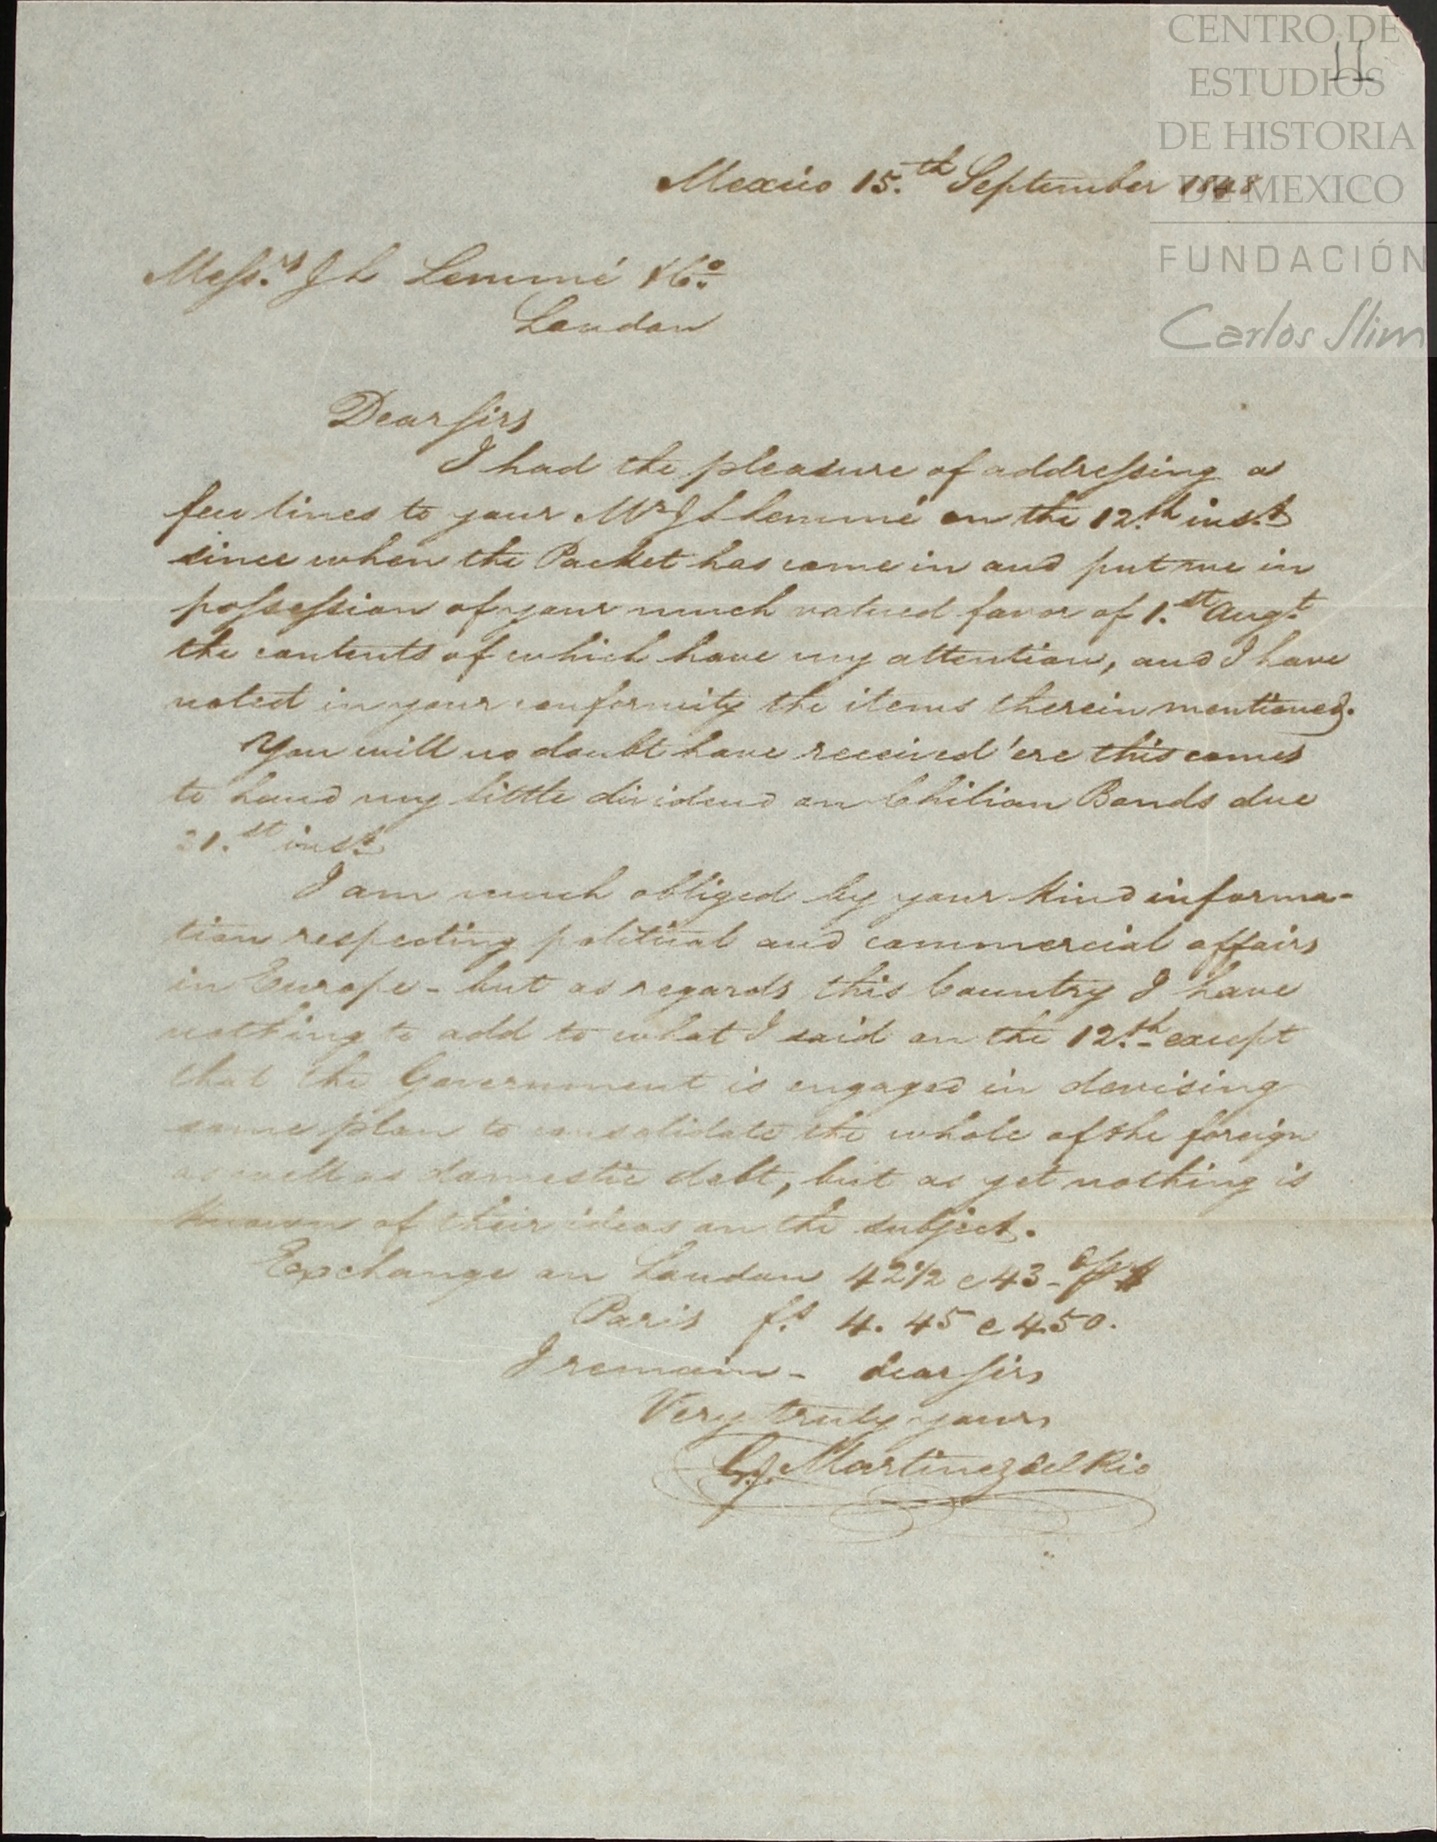 CENTRO DE
ESTUDIOS
DE HISTORIA
DE MEXICO
FUNDACIÓN
Carlos Slim
11
Mexico 15.th September 1848
Mess.rs J L Lemmé & Co.
London
Dear Sirs
I had the pleasure of addressing a
few lines to your Mr J L Lemmé on the 12.th inst.
since when the Packet has come in and put me in
possession of your much valued favor of 1.st Augt.
the contents of which have my attention, and I have
noted in your conformity the items therein mentioned.
You will no doubt have received 'ere this comes
to hand my little dividend on Chilian Bonds due
21.st inst.
I am much obliged by your kind informa-
tion respecting political and commercial affairs
in Europe - but as regards this Country I have
nothing to add to what I said on the 12.th except
that the Government is engaged in devising
some plan to consolidate the whole of the foreign
as well as domestic debt, but as yet nothing is
known of their ideas on the subject.
Exchange on London 42 1/2 @ 43
Paris fs. 4. 45 @ 450.
I remain - dear Sirs
Very truly yours
Martinez del Rio